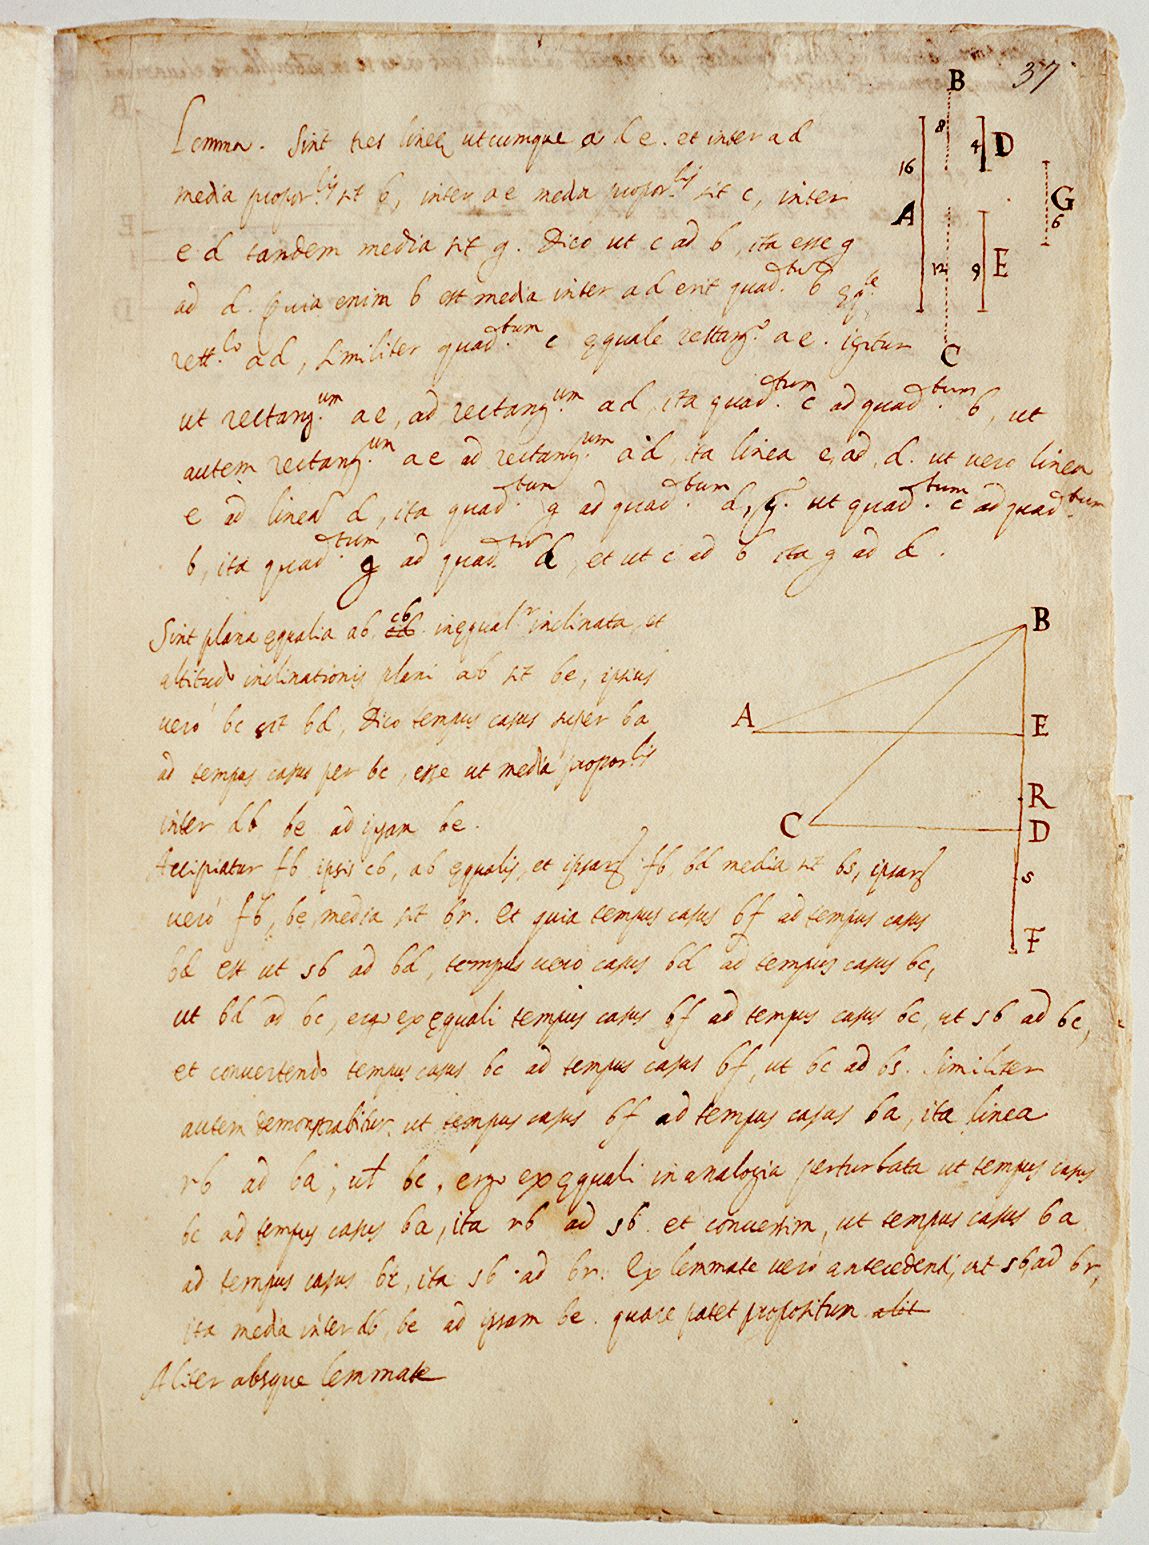 37
Lemma. Sint tres lineę utcumque a d e. et inter a d
media propor.lis sit b, inter a e media propor.lis sit c, inter
e d tandem media sit g. Dico ut c ad b, ita esse g
ad d. Quia enim b est media inter a d erit quad.tu b ęq.le
rett.lo a d, similiter quad.tum c ęquale rettang.o a e. igitur
ut rectang.um a e, ad rectang.um a d, ita quad.tum c ad quad.tum b, ut
autem rectang.um a e ad rectang.um a d, ita linea e, ad, d. ut vero linea
e ad linea d, ita quad.tum g ad quad.tum d, g. ut quad.tum c ad quad.tum
b, ita quad.tum g ad quad.tu d, et ut c ad b ita g ad d.
B
8
4
D
16
A
G
6
12
9
E
C
Sint plana ęqualia ab, cb inęqual.r inclinata, et
altitudo inclinationis plani ab sit be, ipsius
vero bc sit bd. Dico tempus casus super ba
ad tempus casus per bc, esse ut media propor.lis
inter db be ad ipsam be.
B
A
E
R
C
D
S
F
Accipiatur fb ipsis cb, ab ęqualis, et ipsar. fb, bd media sit bs, ipsar.
vero fb, be, media sit br. et quia tempus casus bf ad tempus casus
bd est ut sb ad bd, tempus vero casus bd ad tempus casus bc,
ut bd ad bc, ergo ex ęquali tempus casus bf ad tempus casus bc, ut sb ad bc,
et convertendo tempus casus bc ad tempus casus bf, ut bc ad bs. Similiter
autem demonstrabitur ut tempus casus bf ad tempus casus ba, ita linea
rb ad ba, ut bc, ergo ex ęquali in analogia perturbata ut tempus casus
bc ad tempus casus ba, ita rb ad sb. et conversim, ut tempus casus ba
ad tempus casus bc, ita sb ad br. Ex lemmate vero antecedenti, ut sb ad br,
ita media inter db, be ad ipsam be. quare patet propositum alit
Aliter absque lemmate